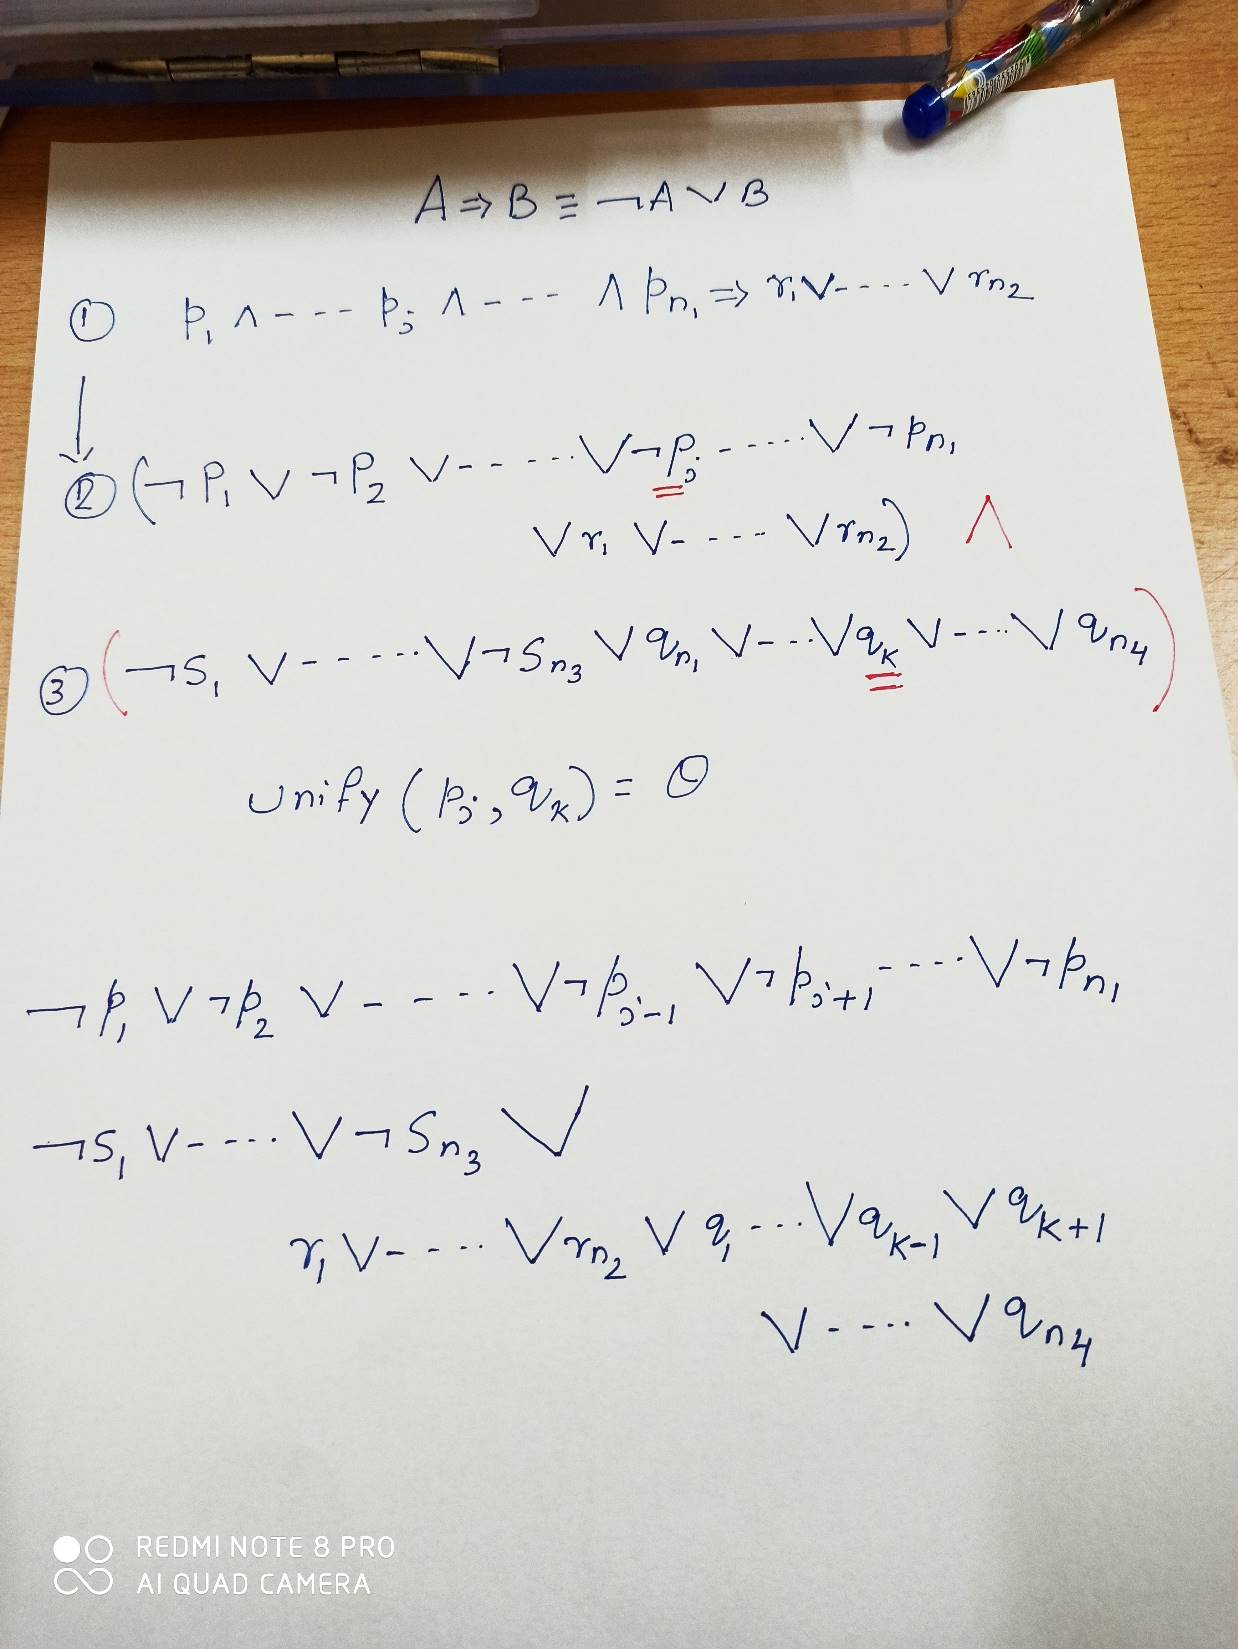 A ⇒ B ≡ ¬A ∨ B
① p₁ ∧ ---- pⱼ ∧ ---- ∧ pₙ₁ ⇒ r₁ ∨ ----- ∨ rₙ₂
↓
② (¬P₁ ∨ ¬P₂ ∨ ------ ∨ ¬Pⱼ ------ ∨ ¬pₙ₁
∨ r₁ ∨ ----- ∨ rₙ₂) ∧
③ (¬S₁ ∨ ------ ∨ ¬Sₙ₃ ∨ qₙ₁ ∨ ---- ∨ qₖ ∨ ---- ∨ qₙ₄)
Unify (pⱼ, qₖ) = θ
¬p₁ ∨ ¬p₂ ∨ ------ ∨ ¬pⱼ₋₁ ∨ ¬pⱼ₊₁ ----- ∨ ¬pₙ₁
¬S₁ ∨ ----- ∨ ¬Sₙ₃ ∨
r₁ ∨ ----- ∨ rₙ₂ ∨ q₁ ---- ∨ qₖ₋₁ ∨ qₖ₊₁
∨ ---- ∨ qₙ₄
REDMI NOTE 8 PRO
AI QUAD CAMERA